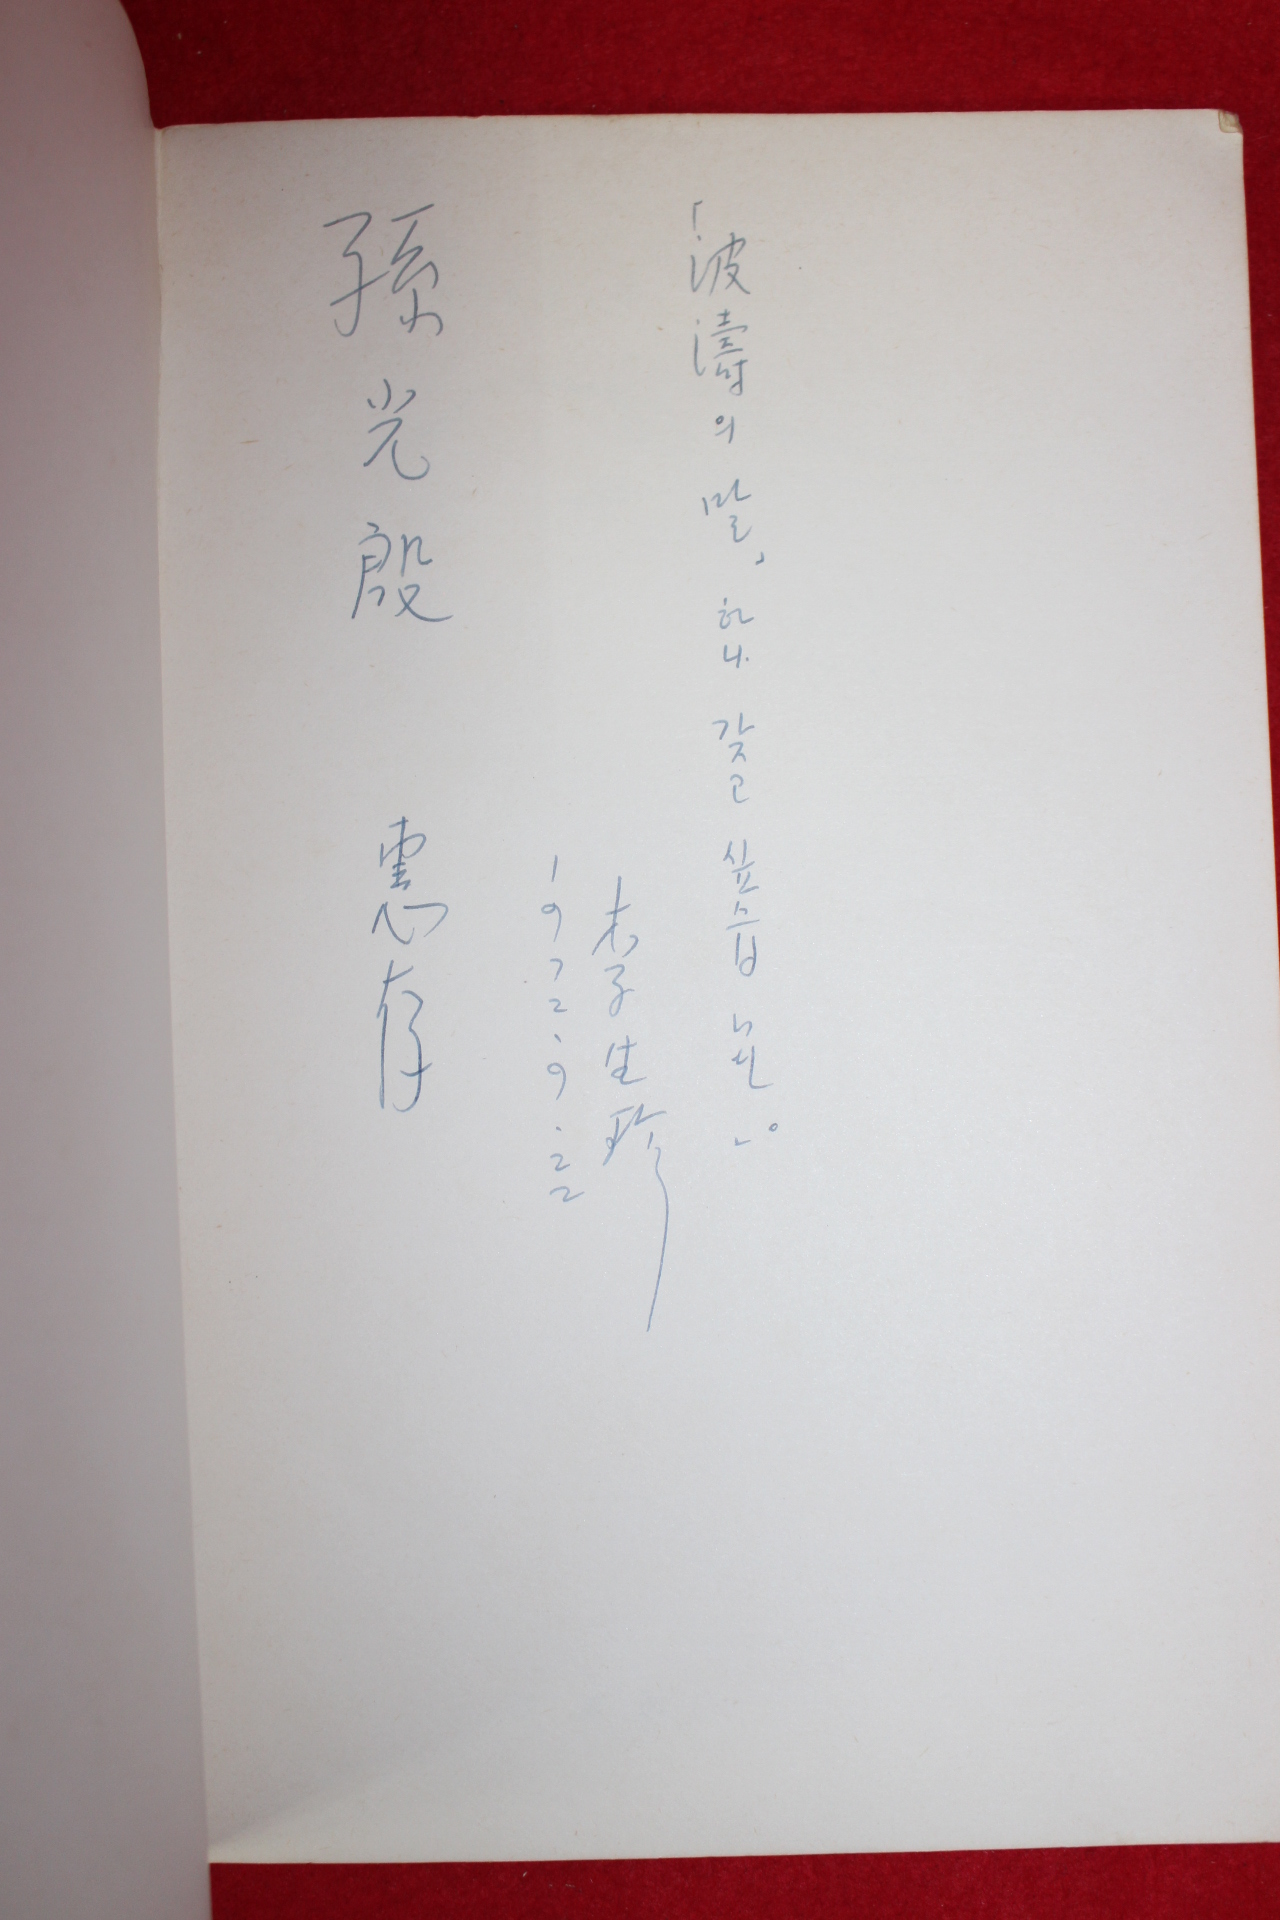 「波濤의 말」 하나 갖고 싶습니다.
李生珍
1972.9.22
孫光殷 惠存